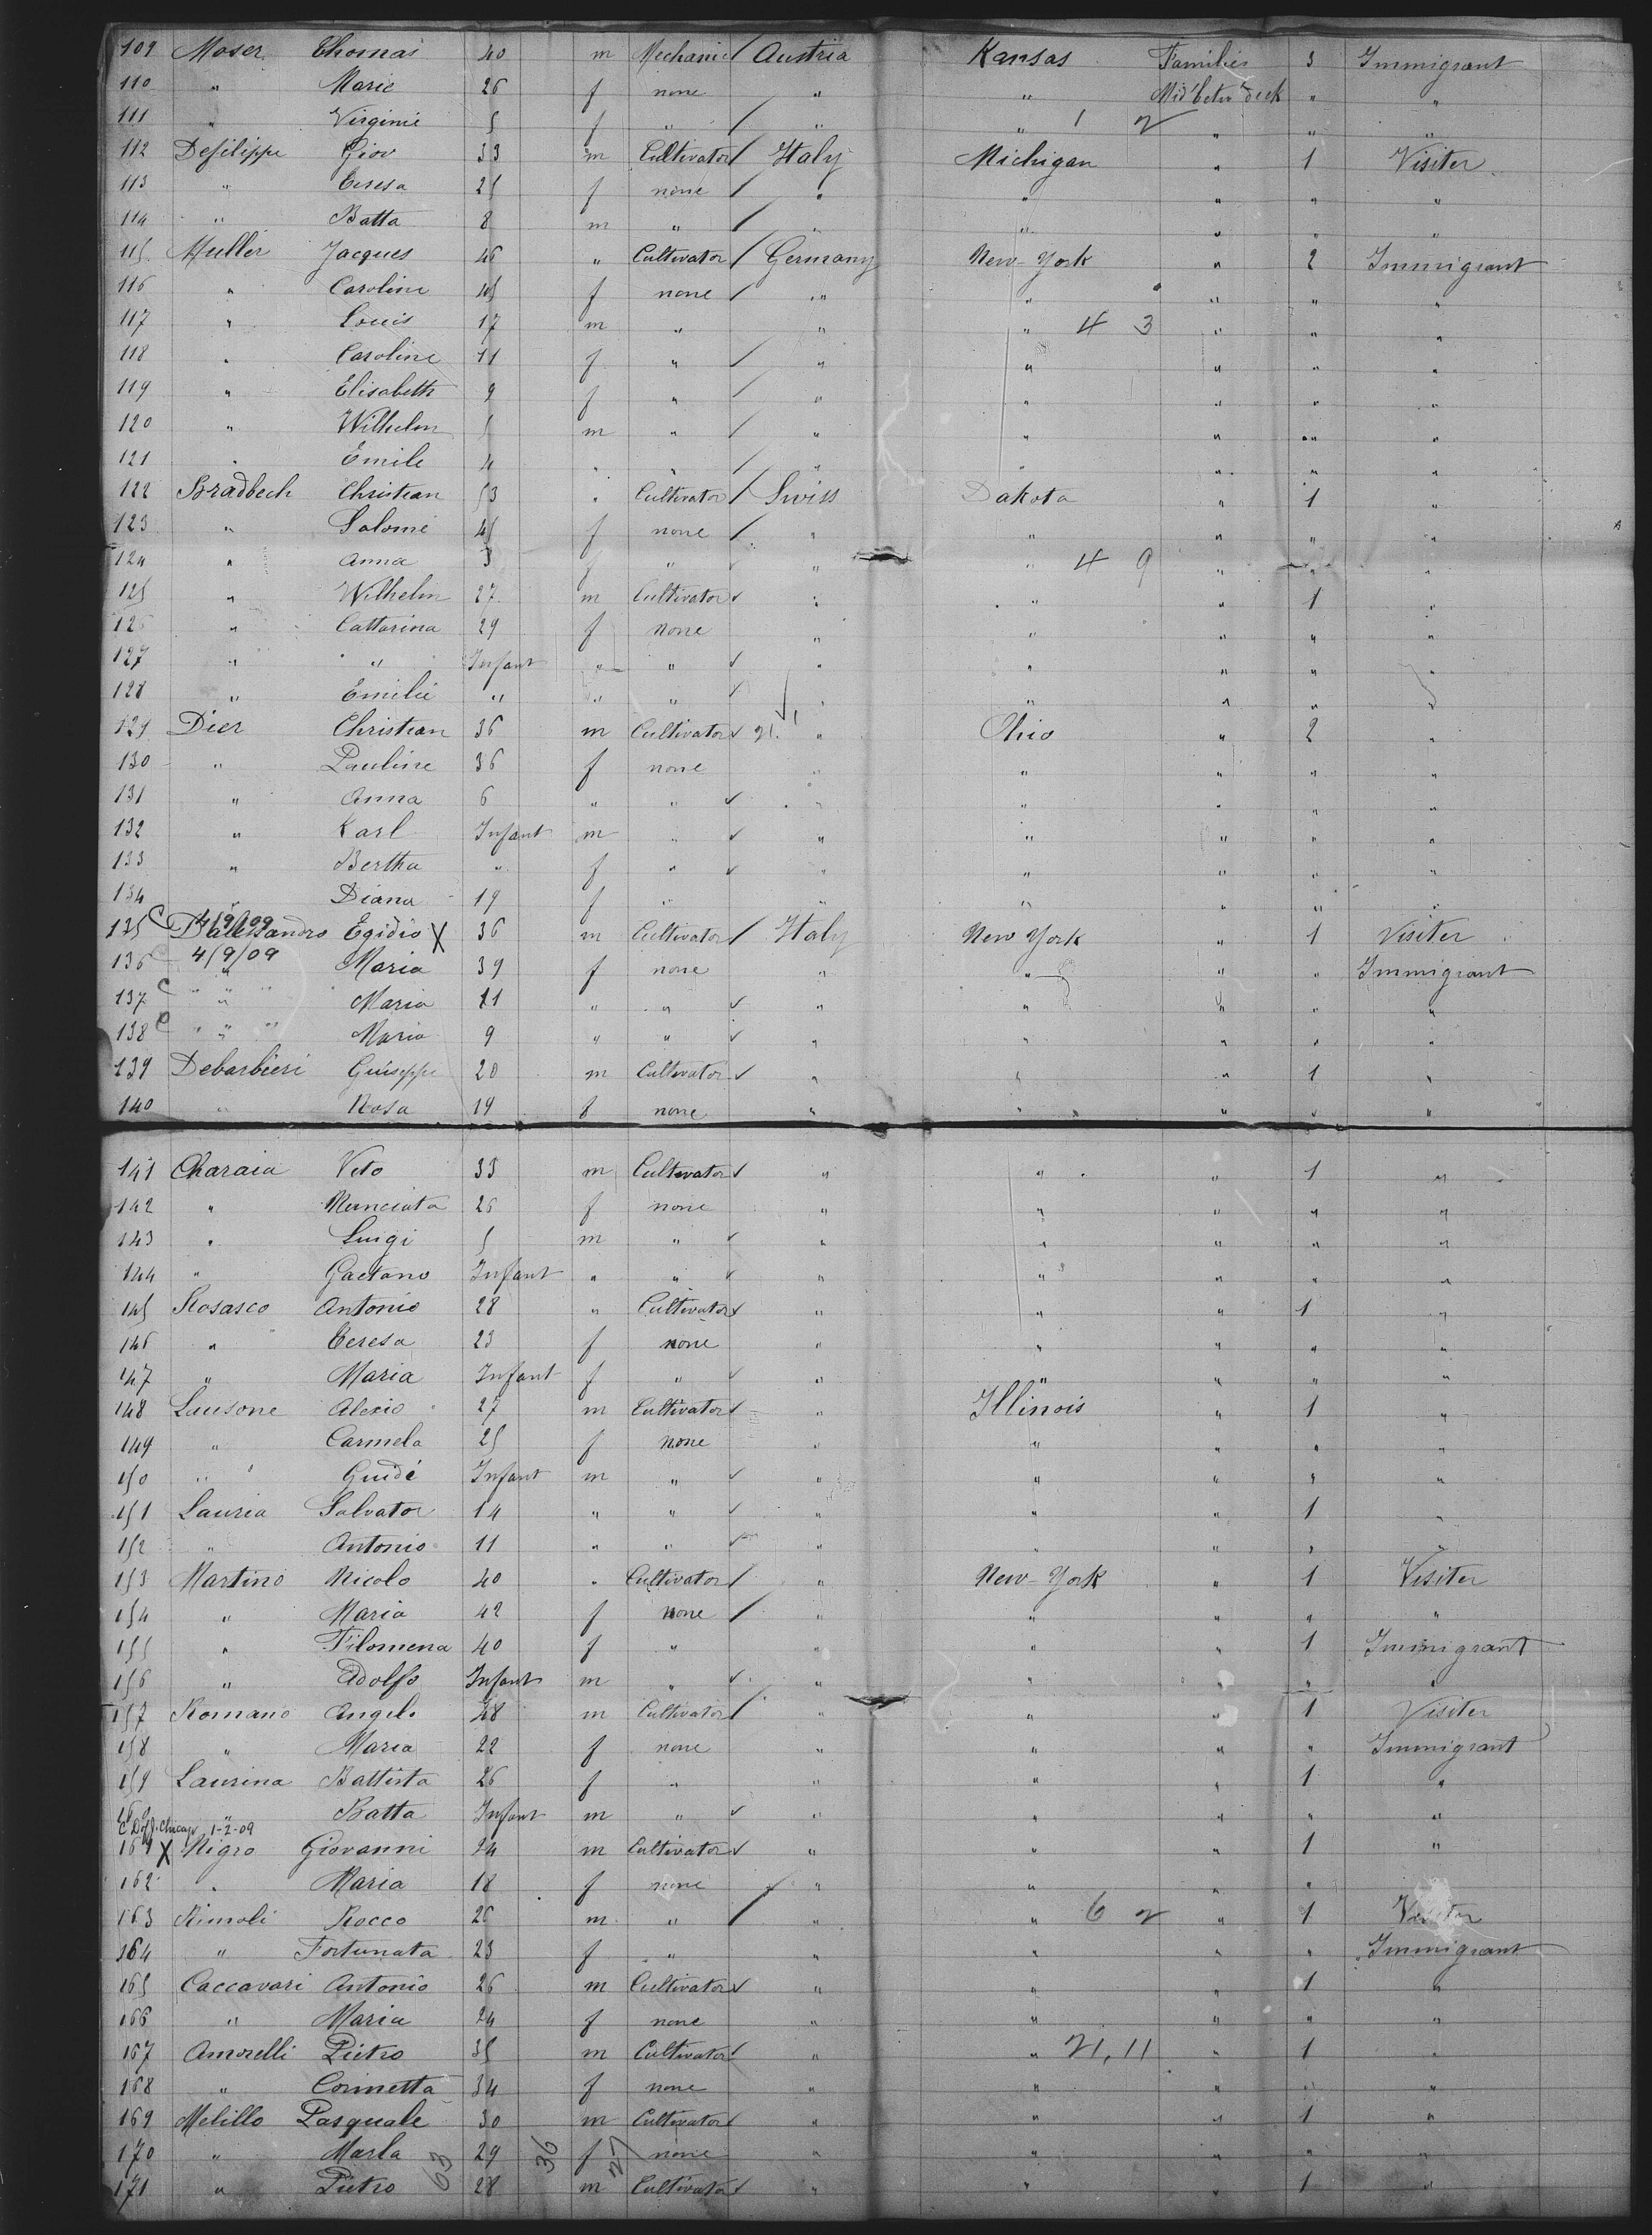 109 Moser Thomas 40 m Mechanic / Austria Kansas Families 3 Immigrant
110 " Marie 26 f none " " Mid'betw deck " "
111 " Virginie 5 f " / " " 1 2 " " "
112 Defilippe Giov 33 m Cultivator / Italy Michigan " 1 Visiter
113 " Teresa 25 f none / " " " " "
114 " Batta 8 m " / " " " " "
115 Muller Jacques 46 " Cultivator / Germany New-York " 2 Immigrant
116 " Caroline 45 f none / " " " " "
117 " Louis 17 m " " " 4 3 " " "
118 " Caroline 11 f " / " " " " "
119 " Elisabeth 9 f " / " " " " "
120 " Wilhelm 5 m " / " " " " "
121 " Emile 4 " " / " " " " "
122 Bradbech Christian 53 " Cultivator / Swiss Dakota " 1 "
123 " Salome 45 f none / " " " " "
124 " Anna 3 f " ✓ " " 4 9 " " "
125 " Wilhelm 27 m Cultivator ✓ " " " 1 "
126 " Cattarina 29 f none " " " " "
127 " " Infant " " ✓ " " " " "
128 " Emilie " " " ✓ " " " " "
129 Dier Christian 36 m Cultivator ✓ 21. " Ohio " 2 "
130 " Pauline 36 f none " " " " "
131 " Anna 6 " " ✓ " " " " "
132 " Karl Infant m " ✓ " " " " "
133 " Bertha " f " ✓ " " " " "
134 " Diana 19 f " " " " " "
135 C 4/9/09 Dalessandro Egidio X 36 m Cultivator / Italy New York " 1 Visiter
136 C 4/9/09 " Maria 39 f none " " " " Immigrant
137 C " " " Maria 11 " " ✓ " " " " "
138 C " " " Maria 9 " " ✓ " " " " "
139 Debarbieri Guiseppe 20 m Cultivator ✓ " " " 1 "
140 " Rosa 19 f none " " " " "
141 Charaia Vito 33 m Cultivator ✓ " " " 1 "
142 " Nunciata 26 f none " " " " "
143 " Luigi 5 m " ✓ " " " " "
144 " Gaetano Infant " " ✓ " " " " "
145 Rosasco Antonio 28 " Cultivator ✓ " " " 1 "
146 " Teresa 23 f none " " " " "
147 " Maria Infant f " ✓ " " " " "
148 Lausone Alexio 27 m Cultivator ✓ " Illinois " 1 "
149 " Carmela 25 f none " " " " "
150 " Guide Infant m " ✓ " " " " "
151 Lauria Salvator 14 " " ✓ " " " 1 "
152 " Antonio 11 " " ✓ " " " " "
153 Martino Nicolo 40 " Cultivator / " New-York " 1 Visiter
154 " Maria 42 f none / " " " " "
155 " Filomena 40 f " " " " 1 Immigrant
156 " Adolfo Infant m " ✓ " " " " "
157 Romano Angelo 28 m Cultivator / " " " 1 Visiter
158 " Maria 22 f none " " " " Immigrant
159 Laurina Battista 26 f " " " " 1 "
160 " Batta Infant m " ✓ " " " " "
C Chicago 1-2-09
161 X Nigro Giovanni 24 m Cultivator ✓ " " " 1 "
162 " Maria 18 f none " " " "
163 Rimoli Rocco 26 m " / " " 6 2 " 1 Visiter
164 " Fortunata 23 f " " " " " Immigrant
165 Caccavari Antonio 26 m Cultivator ✓ " " " 1 "
166 " Maria 24 f none " " " " "
167 Amorelli Pietro 35 m Cultivator ✓ " " 21, 11 " 1 "
168 " Corinetta 34 f none " " " " "
169 Melillo Pasquale 30 m Cultivator ✓ " " " 1 "
170 " Marla 29 f none " " " " "
171 " Pietro 28 m Cultivator ✓ " " " 1 "
63 36 27